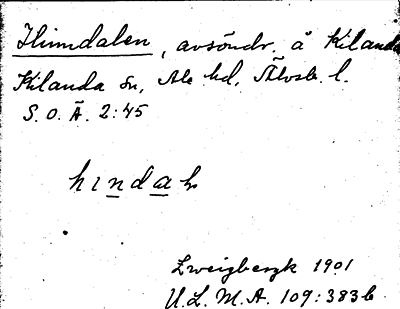 Hinndalen, avsöndr. å Kilanda
Kilanda sn, Ale hd, Älvsb. l.
S. O. Ä. 2:45
hındaln
Zweigbergk 1901
U. L. M. A. 109:383b